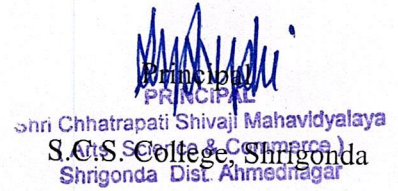 Principal
PRINCIPAL
Shri Chhatrapati Shivaji Mahavidyalaya
(Arts, Science & Commerce)
S.C.S. College, Shrigonda
Shrigonda Dist. Ahmednagar